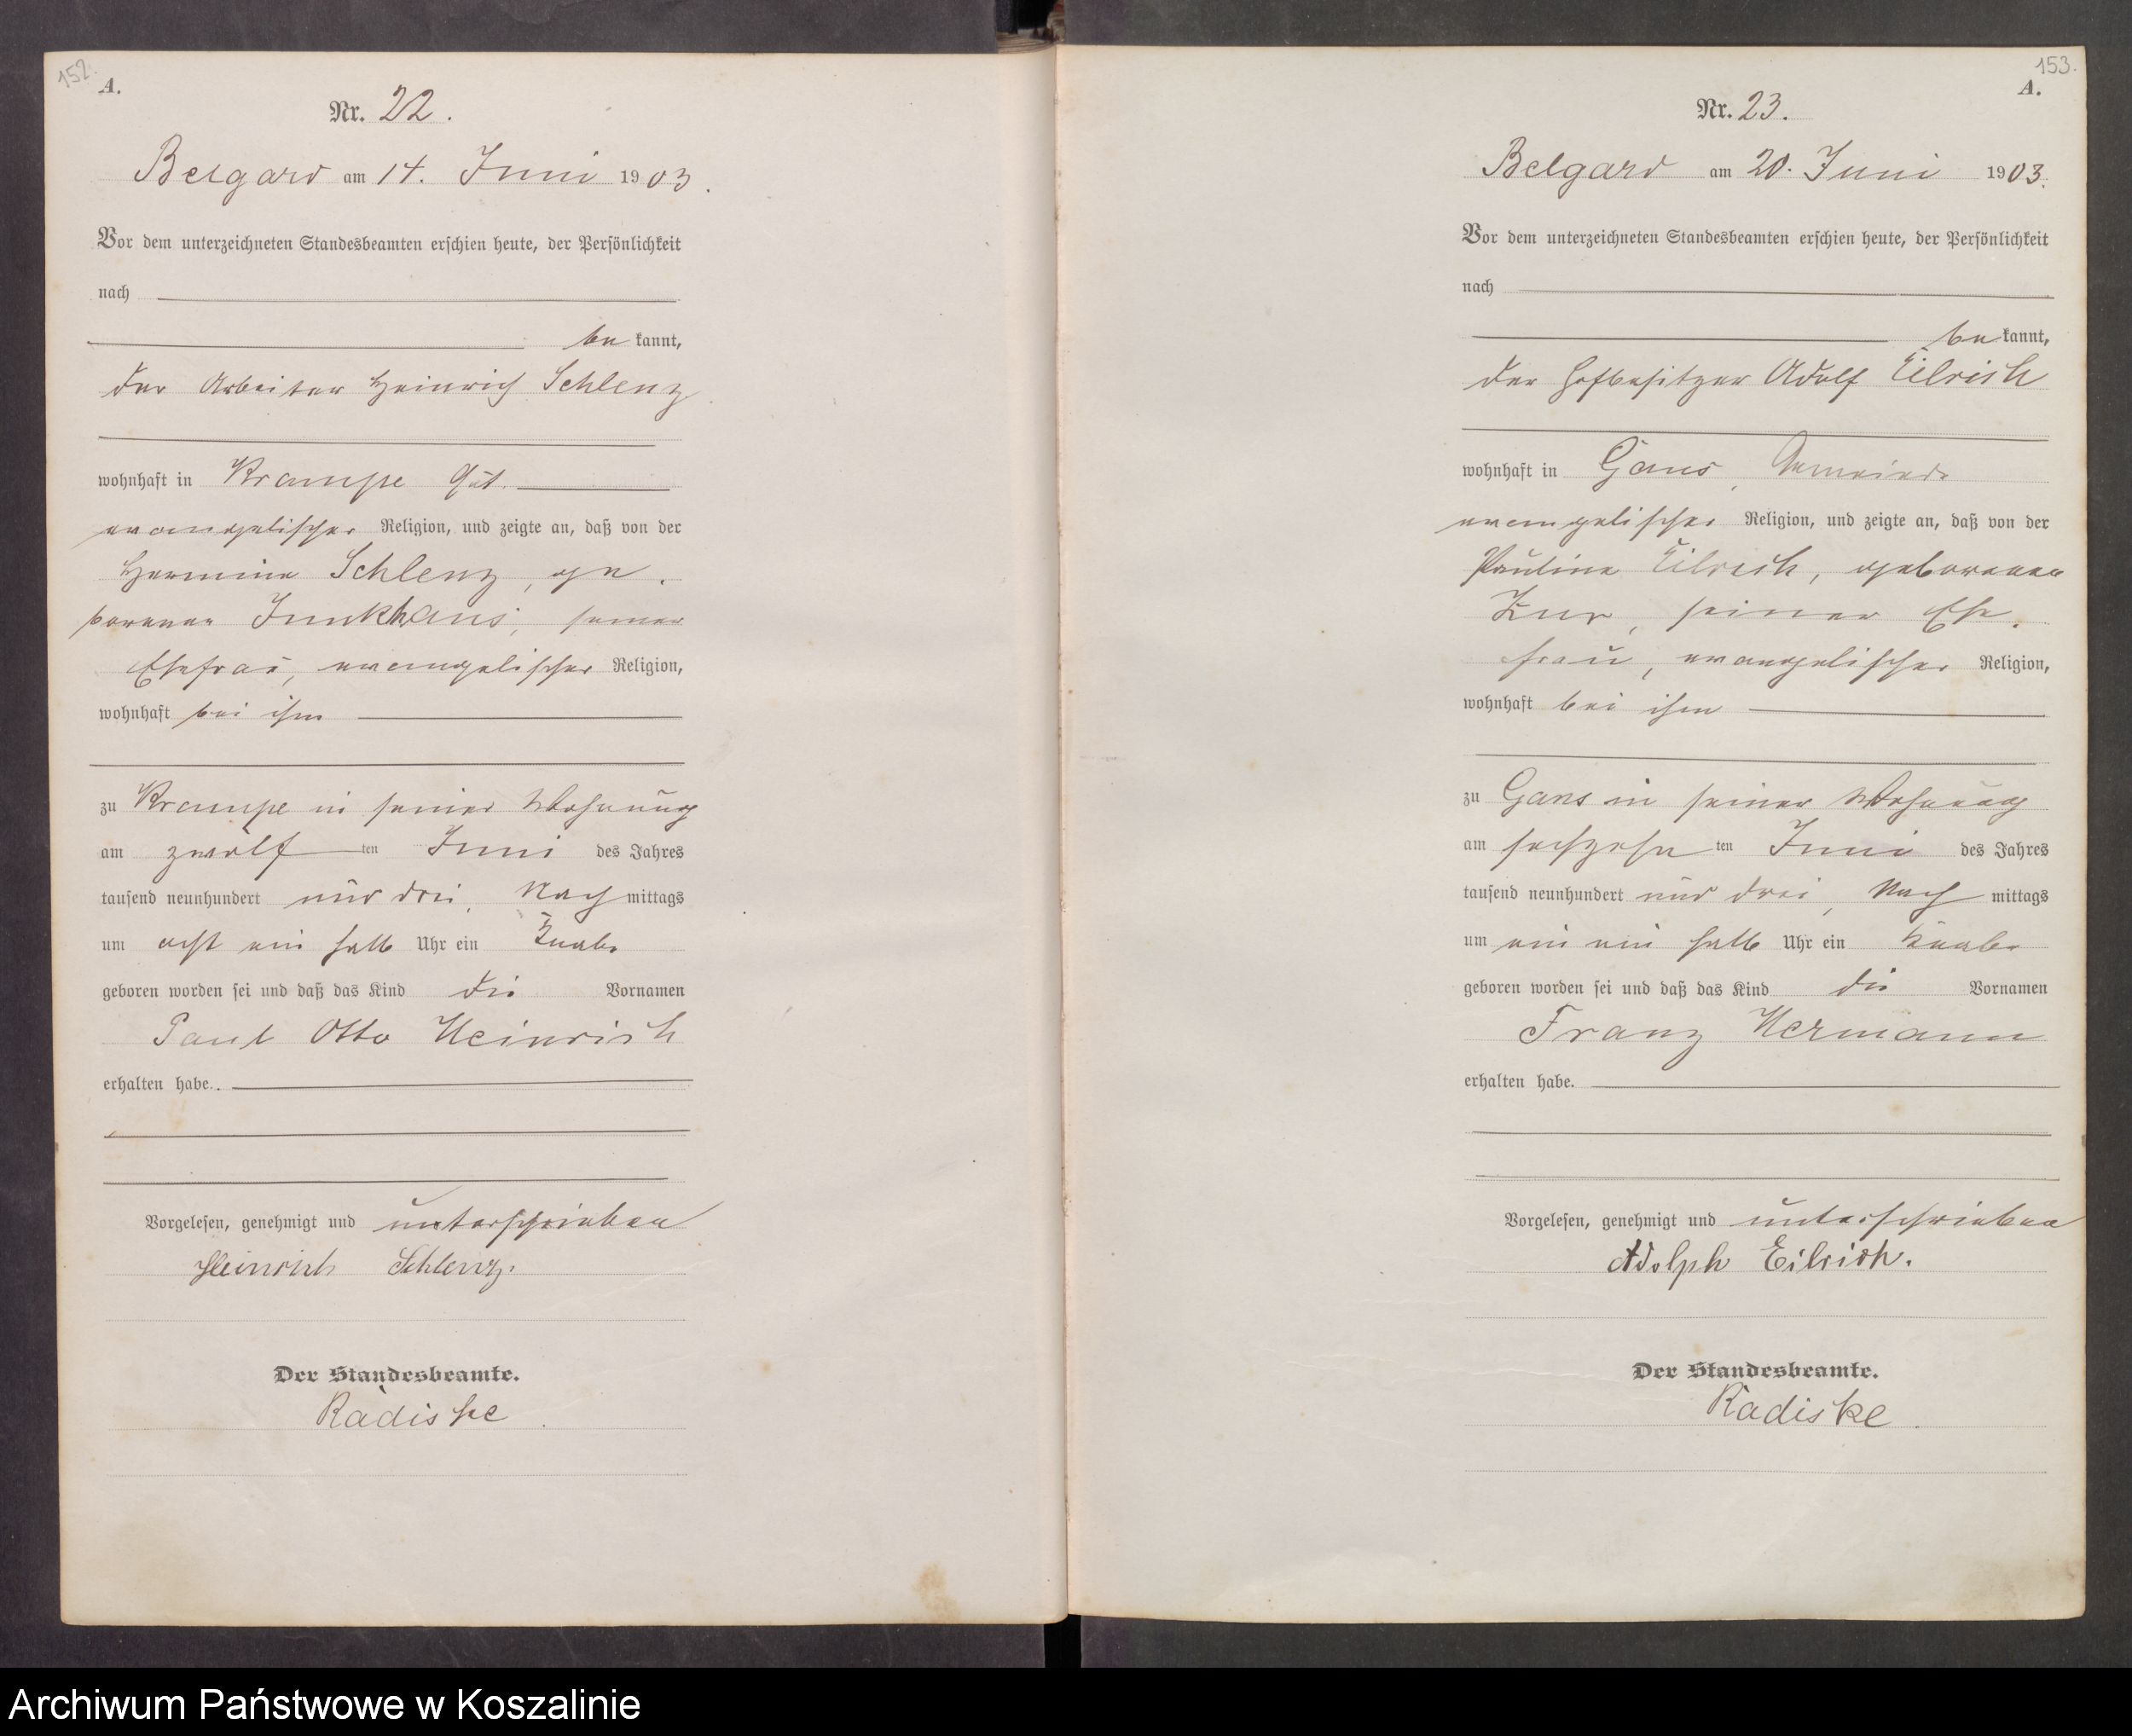 152.
A.
Nr. 22.
Belgard am 14. Juni 1903.
Vor dem unterzeichneten Standesbeamten erschien heute, der Persönlichkeit
nach
be kannt,
der Arbeiter Heinrich Schlenz
wohnhaft in Krampe Gut.
evangelischer Religion, und zeigte an, daß von der
Hermine Schlenz, ge-
borenen Junkhans, seiner
Ehefrau, evangelischer Religion,
wohnhaft bei ihm
zu Krampe in seiner Wohnung
am zwölf ten Juni des Jahres
tausend neunhundert und drei, Nach mittags
um acht ein halb Uhr ein Knabe
geboren worden sei und daß das Kind die Vornamen
Paul Otto Heinrich
erhalten habe.
Vorgelesen, genehmigt und unterschrieben
Heinrich Schlenz.
Der Standesbeamte.
Radiske.
153.
A.
Nr. 23.
Belgard am 20. Juni 1903.
Vor dem unterzeichneten Standesbeamten erschien heute, der Persönlichkeit
nach
be kannt,
der Hofbesitzer Adolf Eilrich
wohnhaft in Gans, Gemeinde
evangelischer Religion, und zeigte an, daß von der
Pauline Eilrich, geborenen
seiner Ehe-
frau, evangelischer Religion,
wohnhaft bei ihm
zu Gans in seiner Wohnung
am sechzehn ten Juni des Jahres
tausend neunhundert und drei, Nach mittags
um ein ein halb Uhr ein Knabe
geboren worden sei und daß das Kind die Vornamen
Franz Hermann
erhalten habe.
Vorgelesen, genehmigt und unterschrieben
Adolph Eilrich.
Der Standesbeamte.
Radiske.
Archiwum Państwowe w Koszalinie